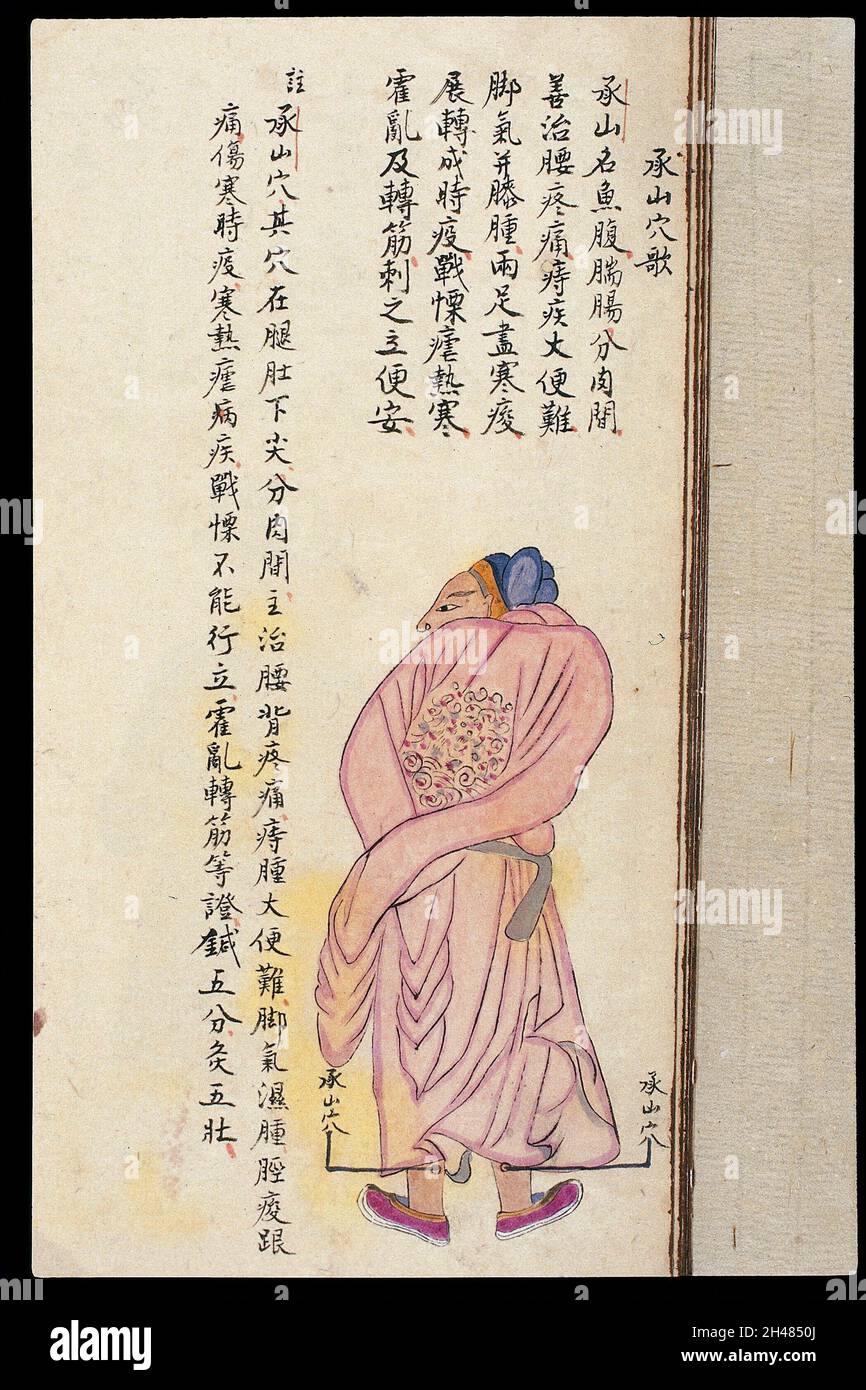 承山穴歌
承山名魚腹腨腸分肉間
善治腰疼痛痔疾大便難
脚氣并膝腫兩足盡寒痠
展轉成時疫戰慄瘧熱寒
霍亂及轉筋刺之立便安
註
承山穴其穴在腿肚下尖分肉間主治腰背疼痛痔腫大便難脚氣濕腫脛痠跟
痛傷寒時疫寒熱瘧病疾戰慄不能行立霍亂轉筋等證鍼五分灸五壯
承山穴
承山穴
alamy
alamy
Image ID: 2H4850J
www.alamy.com